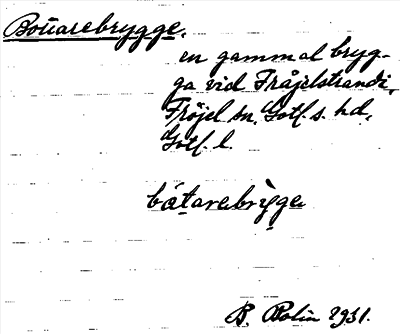 Botarebrygge,
en gammal bryg-
ga vid Fråjelstrandi,
Fröjel sn, Gotl. s. hd,
Gotl. l.
båtarebrygge
B. Bolin 1931.